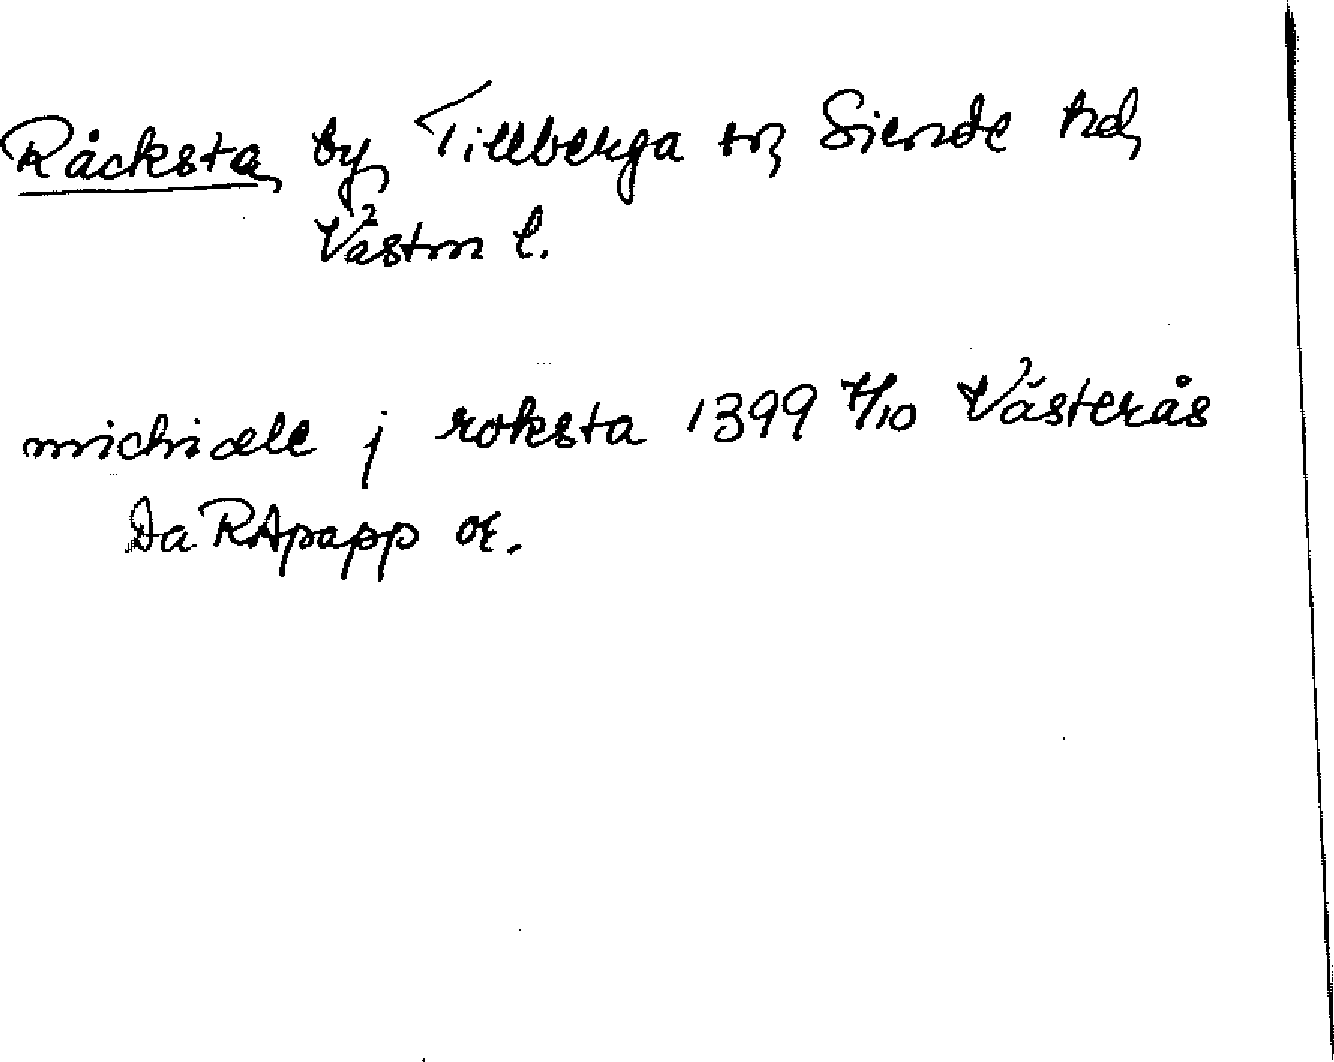 Råcksta, by, Tillberga sn, Siende hd,
Västm l.
michiæll j roksta 1399 7/10 Västerås
Da RApapp or.